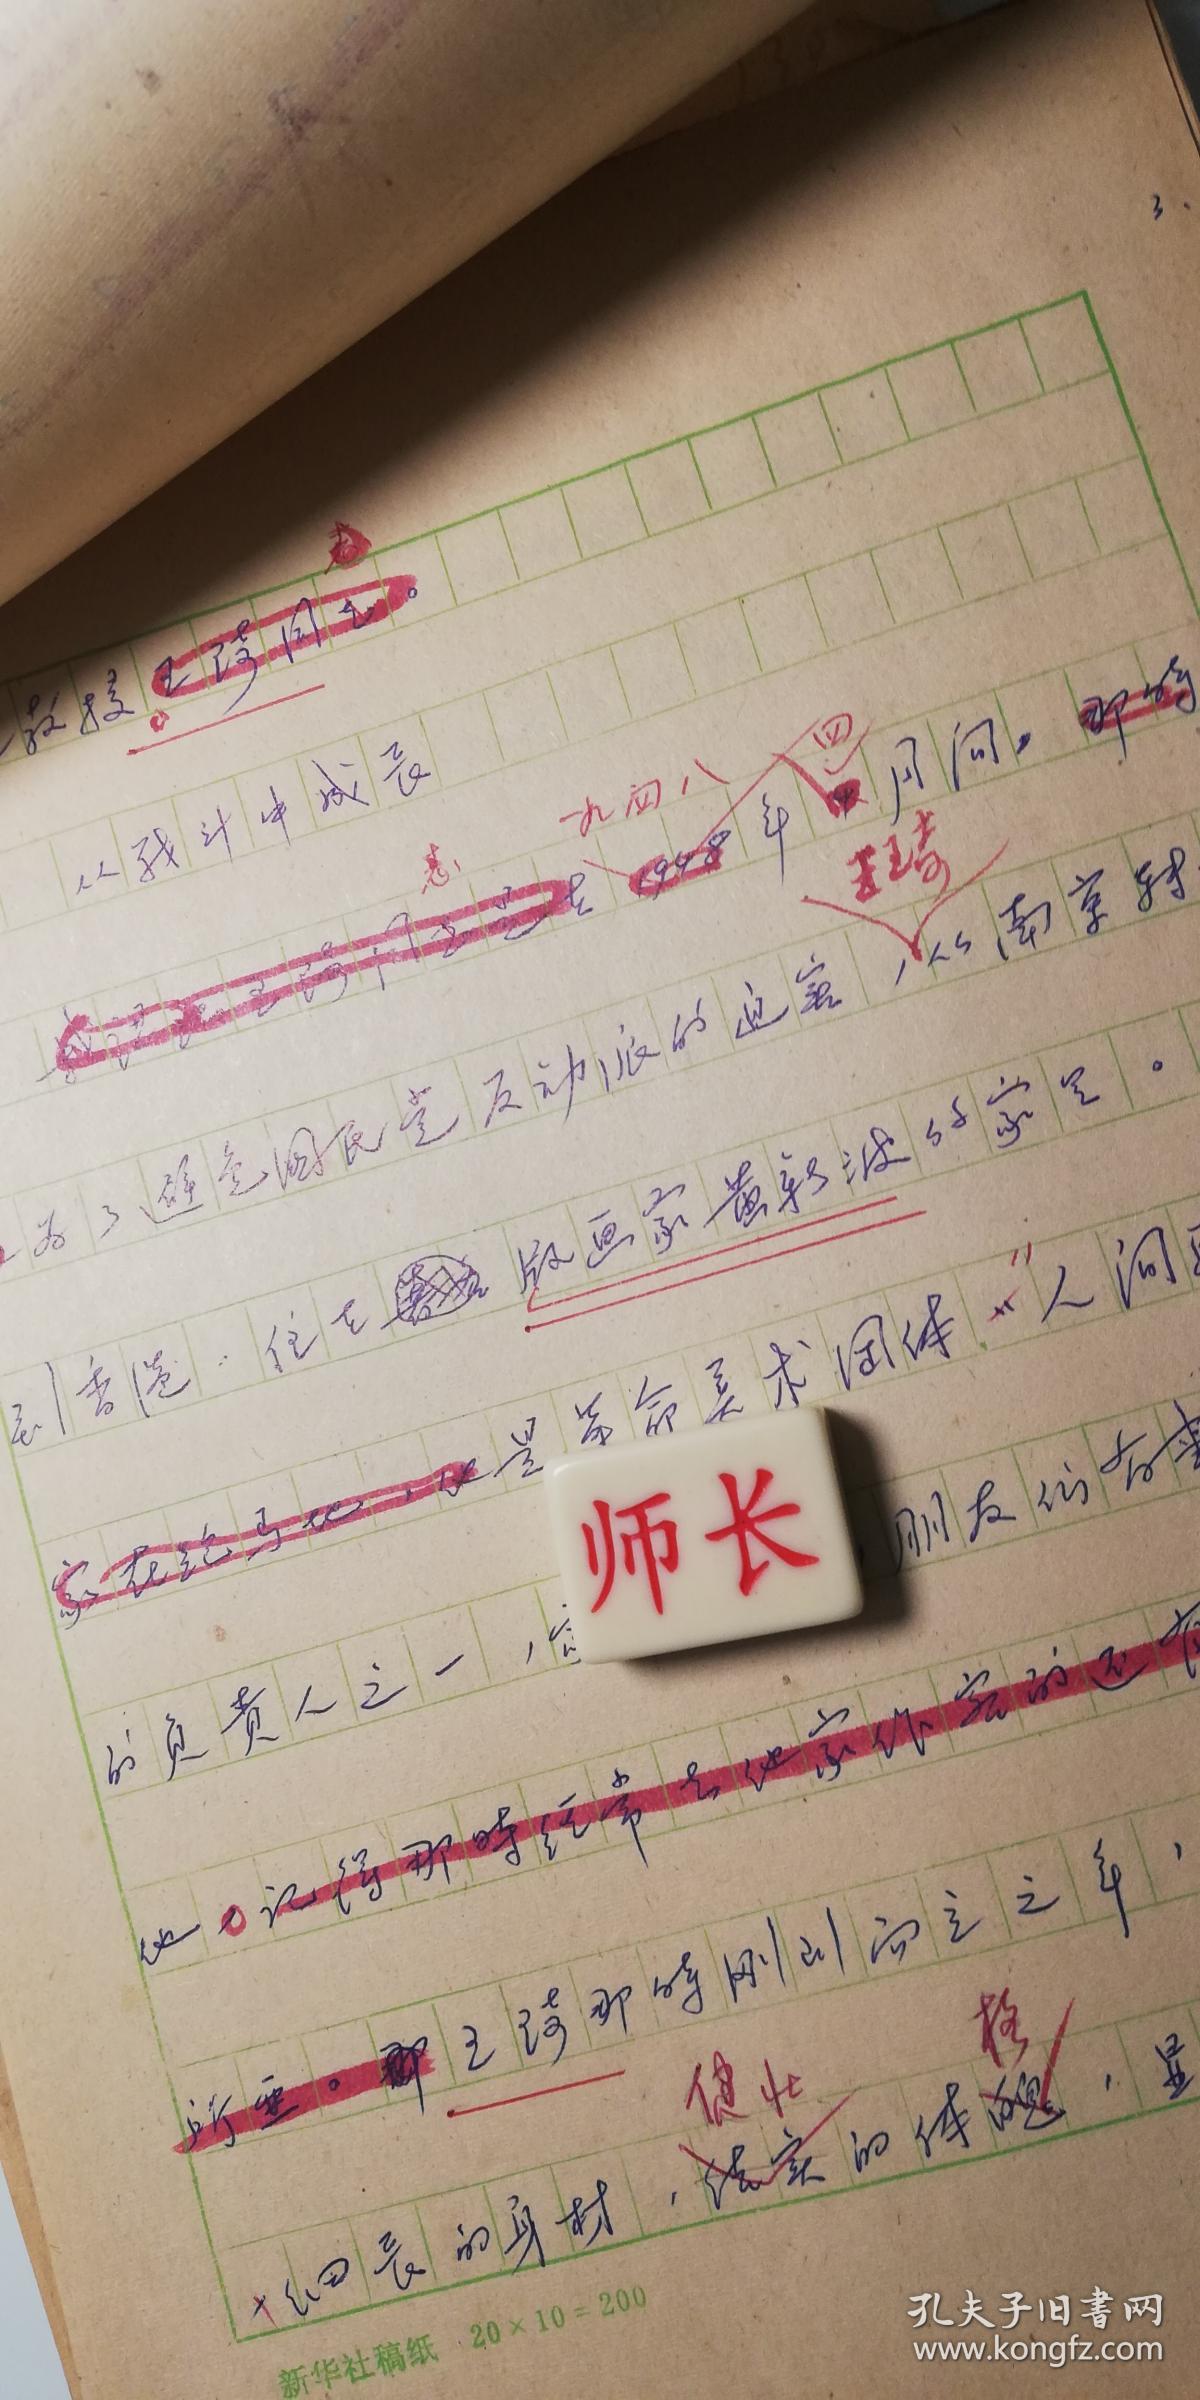 3.
教授王琦同志。
从战斗中成长
一九四八
四
王琦
王琦同志是在1948年 月间。那时
为了避免国民党反动派的迫害,从南京转
到香港.住在 版画家黄新波的家里.
家在跑马地,他是革命美术团体"人间
的负责人之一, 朋友们有事
他。记得那时经常去他家作客的还有
所亚。那王琦那时刚刚而立之年,
健壮
格
细长的身材,结实的体魄,显
师长
新华社稿纸 20×10=200
孔夫子旧书网
www.kongfz.com